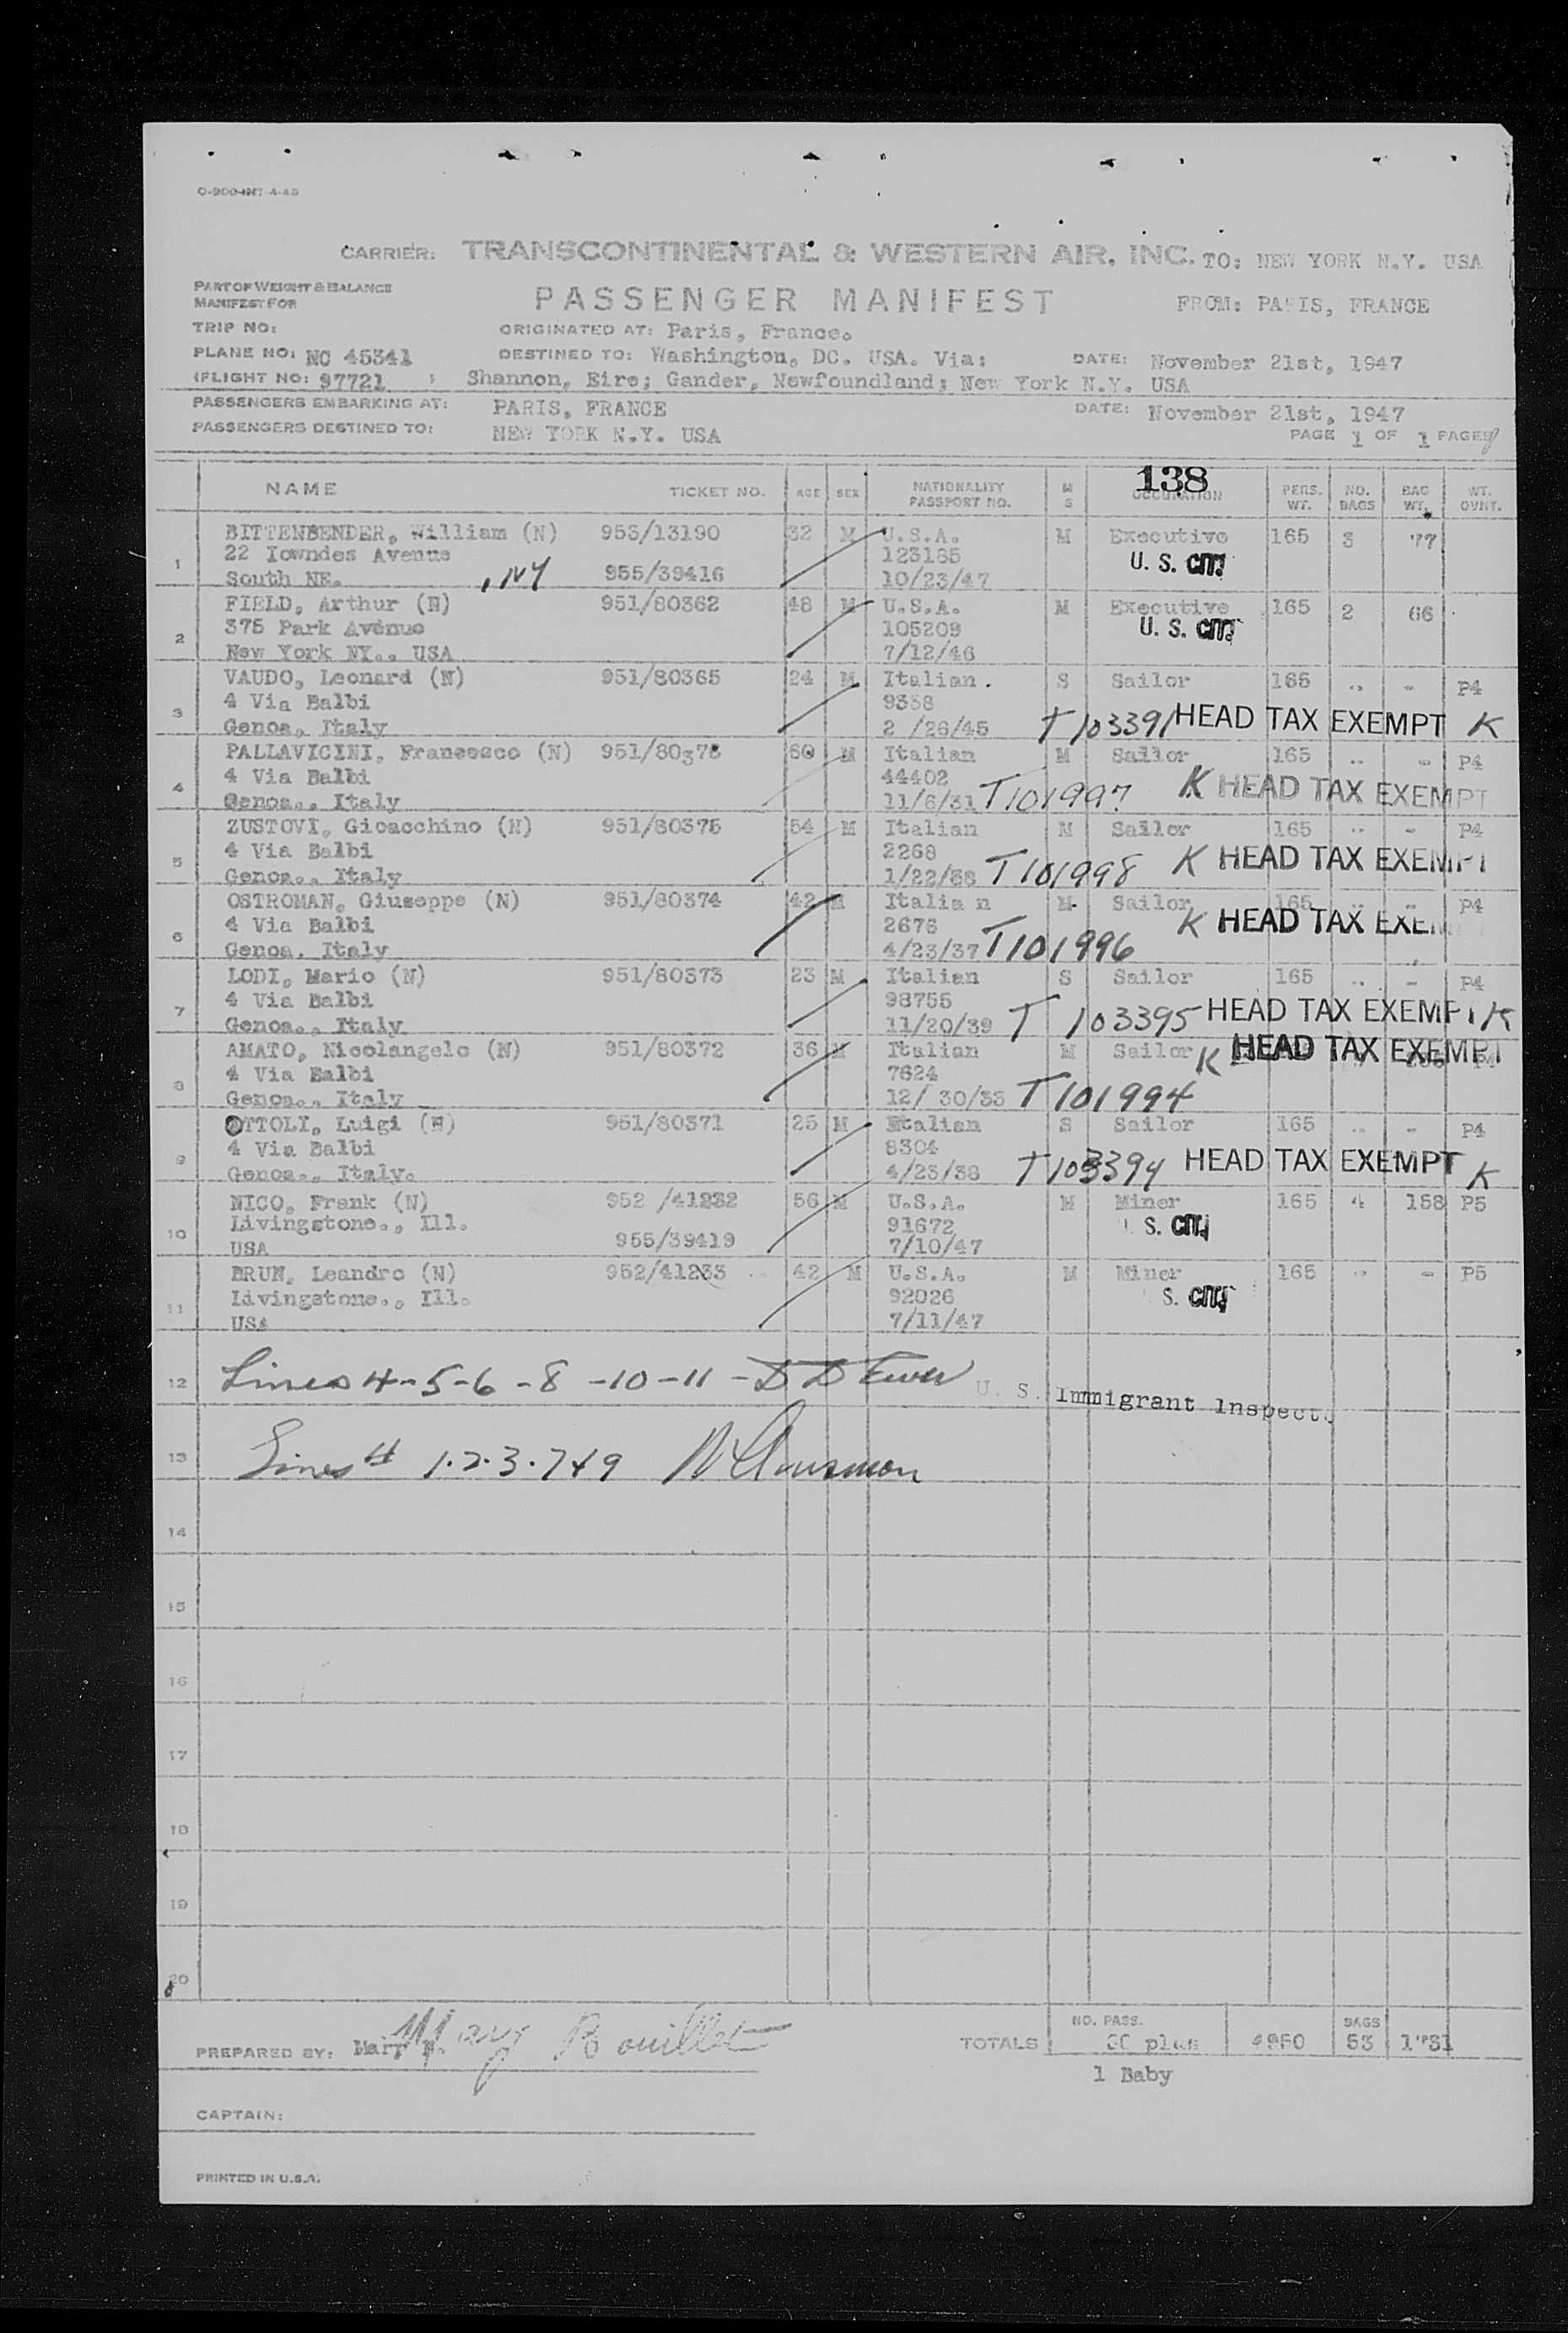 CARRIER: TRANSCONTINENTAL & WESTERN AIR, INC. TO: NEW YORK N.Y. USA
PART OF WEIGHT & BALANCE
MANIFEST FOR
PASSENGER MANIFEST FROM: PARIS, FRANCE
TRIP NO: ORIGINATED AT: Paris, France.
PLANE NO: NC 45341 DESTINED TO: Washington, DC. USA. Via: DATE: November 21st, 1947
(FLIGHT NO: 97721 ) Shannon, Eire; Gander, Newfoundland; New York N.Y. USA
PASSENGERS EMBARKING AT: PARIS, FRANCE DATE: November 21st, 1947
PASSENGERS DESTINED TO: NEW YORK N.Y. USA
PAGE 1 OF 1 PAGES
138
NAME TICKET NO. AGE SEX NATIONALITY PASSPORT NO. M S OCCUPATION PERS. WT. NO. BAGS BAG WT. WT. OVNT.
1 BITTENBENDER, William (N) 953/13190 32 M U.S.A. M Executive 165 3 77
22 Iowndes Avenue 123185 U. S. CIT.
South NE. , NY 955/39416 10/23/47
2 FIELD, Arthur (N) 951/80362 48 M U.S.A. M Executive 165 2 66
375 Park Avenue 105209 U. S. CIT.
New York NY.. USA 7/12/46
3 VAUDO, Leonard (N) 951/80365 24 M Italian. S Sailor 165 .. - P4
4 Via Balbi 9358
Genoa, Italy 2 /26/45 T103391 HEAD TAX EXEMPT K
4 PALLAVICINI, Francesco (N) 951/80376 60 M Italian M Sailor 165 .. - P4
4 Via Balbi 44402
Genoa., Italy 11/6/31 T101997 K HEAD TAX EXEMPT
5 ZUSTOVI, Gioacchino (N) 951/80375 54 M Italian M Sailor 165 .. - P4
4 Via Balbi 2268
Genoa., Italy 1/22/38 T101998 K HEAD TAX EXEMPT
6 OSTROMAN, Giuseppe (N) 951/80374 42 M Italia n M Sailor 165 .. - P4
4 Via Balbi 2678 K HEAD TAX EXE
Genoa. Italy 4/23/37 T101996
7 LODI, Mario (N) 951/80373 23 M Italian S Sailor 165 .. - P4
4 Via Balbi 98755
Genoa., Italy 11/20/39 T 103395 HEAD TAX EXEMPT K
8 AMATO, Nicolangelo (N) 951/80372 36 M Italian M Sailor K HEAD TAX EXEMPT
4 Via Balbi 7624
Genoa., Italy 12/ 30/33 T101994
9 OTTOLI, Luigi (N) 951/80371 25 M Italian S Sailor 165 .. - P4
4 Via Balbi 8304
Genoa., Italy. 4/23/38 T103394 HEAD TAX EXEMPT K
10 NICO, Frank (N) 952 /41232 56 M U.S.A. M Miner 165 4 158 P5
Livingstone., Ill. 91672 S. CIT.
USA 955/39419 7/10/47
11 BRUN, Leandro (N) 952/41233 42 M U.S.A. M Miner 165 - - P5
Livingstone., Ill. 92026 S. CIT.
USA 7/11/47
12 Lines 4-5-6-8-10-11 - U. S. Immigrant Inspect.
13 Lines # 1.2.3.7+9
14
15
16
17
18
19
20
PREPARED BY: Mary Bouillet
TOTALS NO. PASS. 30 plus 4950 BAGS 53 1731
1 Baby
CAPTAIN:
PRINTED IN U.S.A.